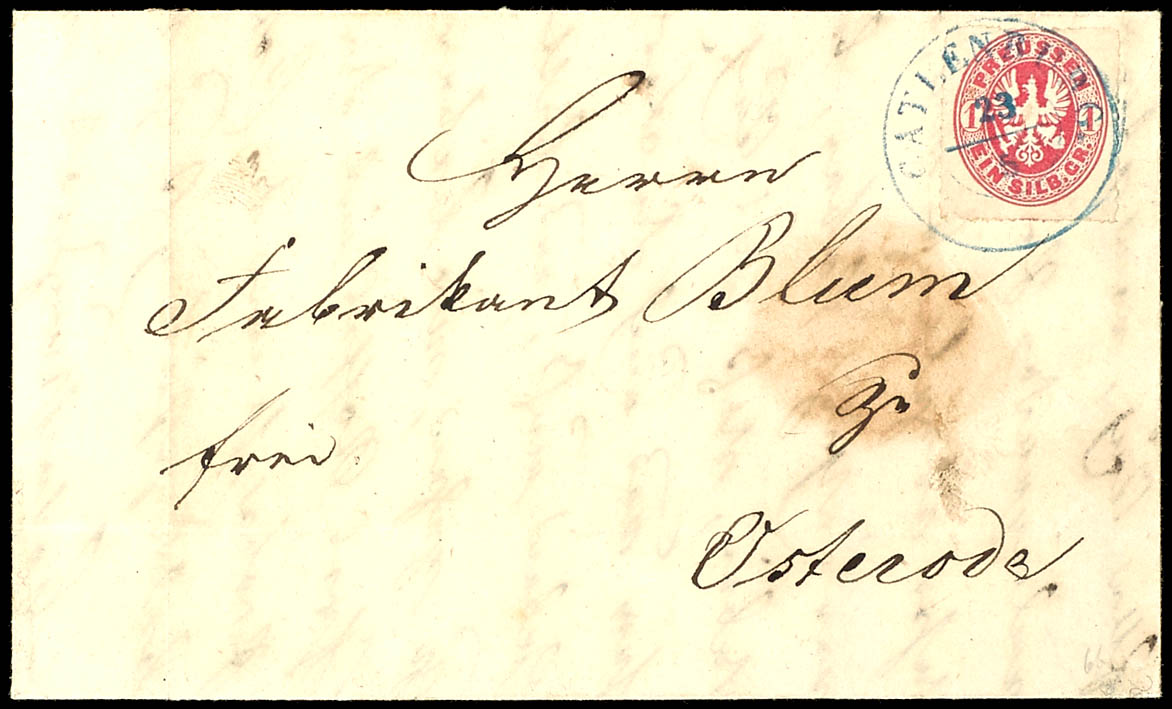 CATLENBURG
23
PREUSSEN
1 1
EIN SILB. GR.
Herrn
Fabrikant Blum
frei
Zu
Osterode